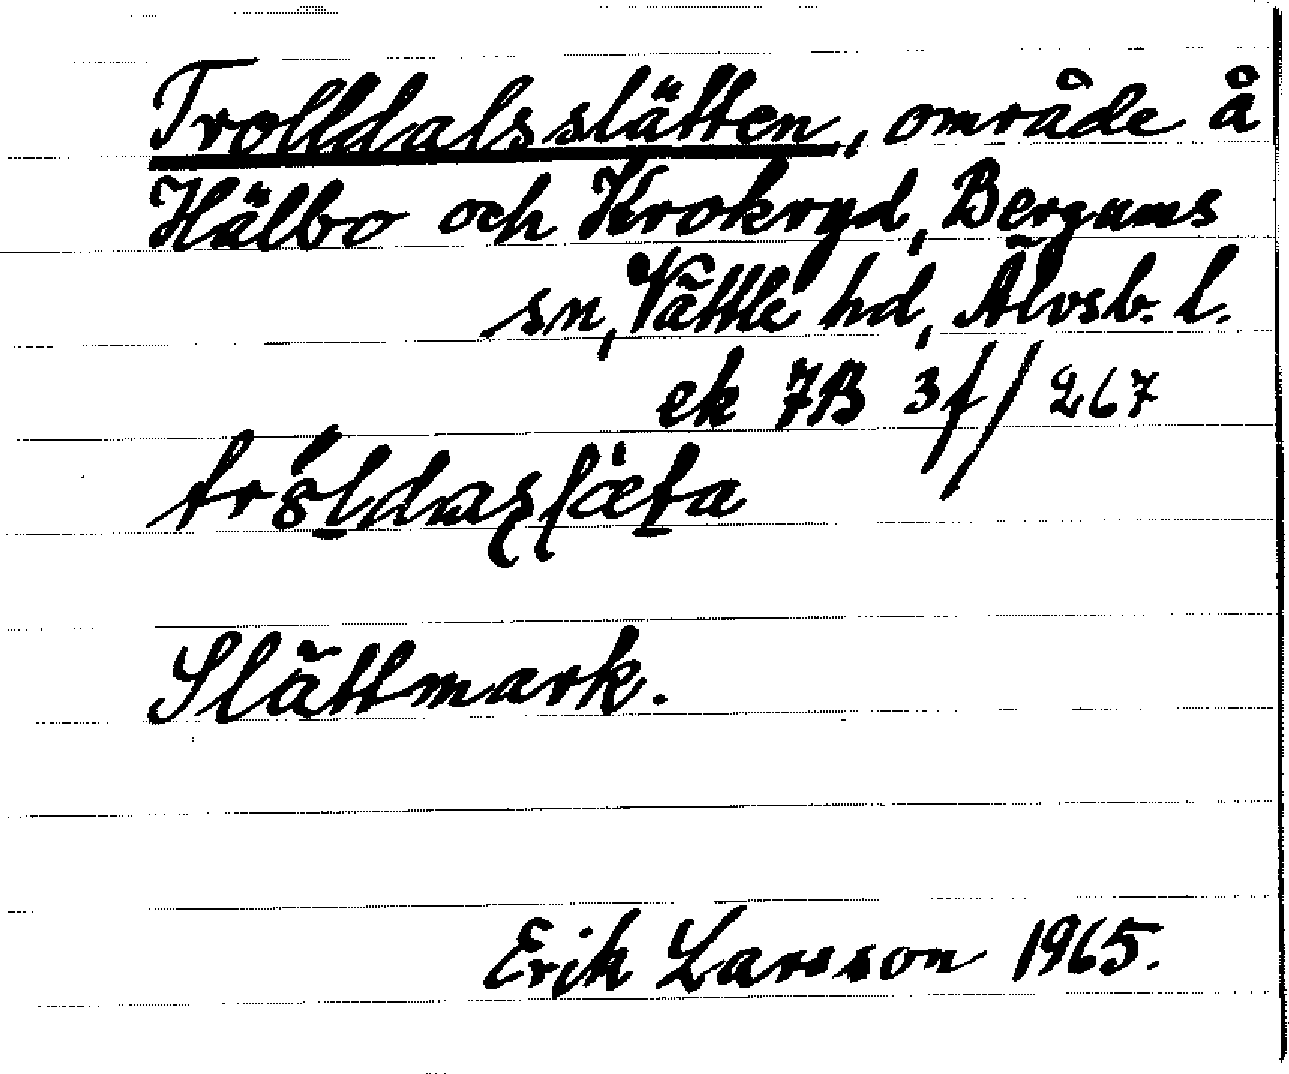 Trolldalsslätten, område å
Hälbo och Krokryd, Bergums
sn, Vättle hd, Älvsb. l.
ek 7B 3f/267
Slättmark.
Erik Larsson 1965.